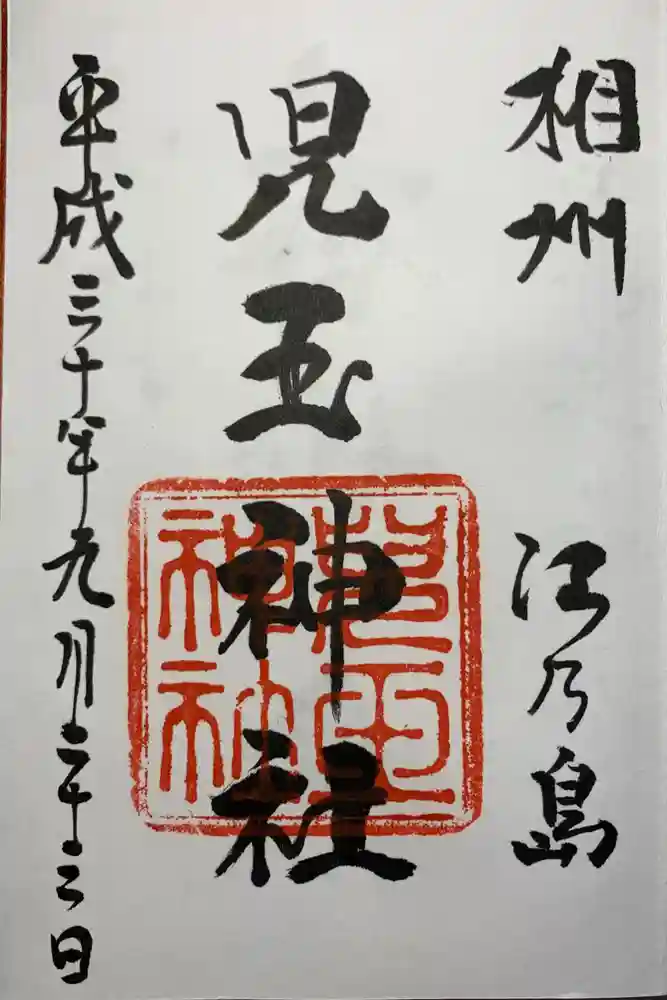 相州 江乃島
児玉神社
兒玉神社
平成三十年九月二十三日